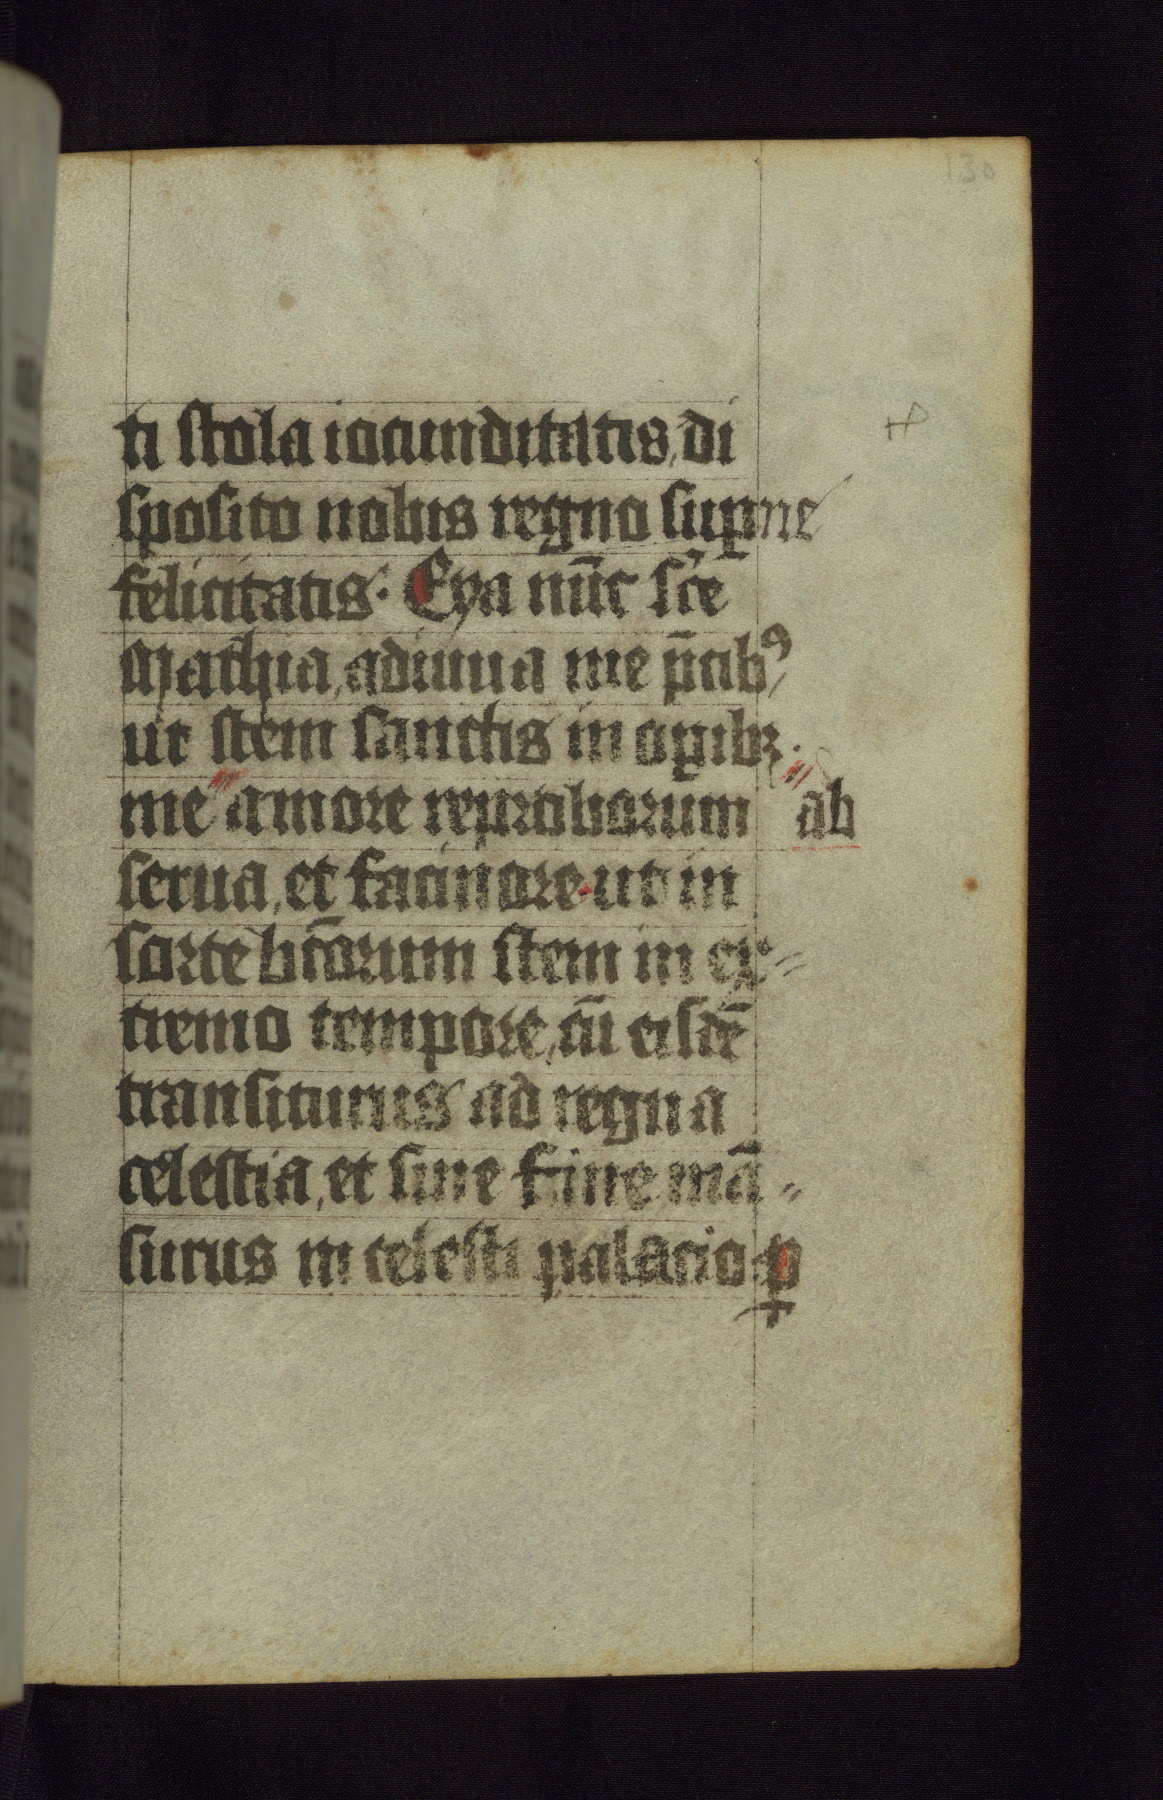 130
ti stola iocunditatis, di
sposito nobis regno sup̲ne
felicitatis. Eya nūc sc̄e
Mathia, adiuua me p̄cibꝰ,
ut stem sanctis in oꝑibꝫ.
me amore reproborum ab
serua, et facinore ut in
sorte bt̄orum stem in ex⸗
tremo tempore, cū eisdē
transiturus ad regna
celestia, et sine fine mā⸗
surus in celesti palacio ꝑ